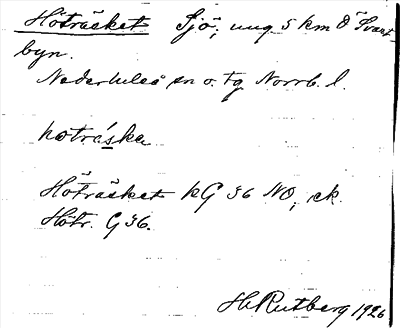 Höträsket Sjö; ung 5 km Ö Svart-
byn.
Nederluleå sn o. tg Norrb. l.
hotrȧska
Höträsket kG 36 NO, ek.
Hötr. G 36.
H Rutberg 1926